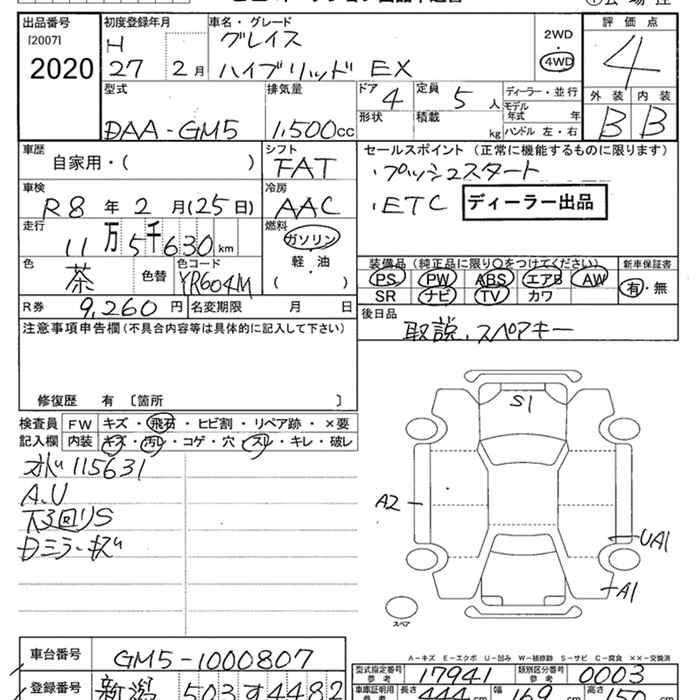 出品番号
[2007]
2020
初度登録年月
H
27 2月
車名・グレード
グレイス
ハイブリッド EX
2WD
4WD
評価点
4
外装 内装
B B
型式
DAA-GM5
排気量
1,500cc
ドア 4
定員 5 人
形状
積載 kg
ディーラー・並行
モデル年式 年
ハンドル 左・右
車歴
自家用・( )
シフト
FAT
セールスポイント (正常に機能するものに限ります)
・プッシュスタート
・ETC
ディーラー出品
車検
R8年2月(25日)
冷房
AAC
走行
11万5千630km
燃料
ガソリン
軽・油
( )
色
茶
色替
色コード
YR604M
装備品(純正品に限り○をつけてください)
PS PW ABS エアB AW
SR ナビ TV カワ
新車保証書
有・無
R券 9,260円
名変期限 月 日
後日品
取説、スペアキー
注意事項申告欄(不具合内容等は具体的に記入して下さい)
修復歴 有 〔箇所 〕
検査員 FW キズ・飛石・ヒビ割・リペア跡・×要
記入欄 内装 キズ・汚レ・コゲ・穴・スレ・キレ・破レ
115631
A.U
下回りS
Dミラーキズ
S1
A2
UA1
A1
スペア
A-キズ E-エクボ U-凹み W-補修跡 S-サビ C-腐食 ××-交換済
車台番号 GM5-1000807
型式指定番号 参考 17941
類別区分番号 参考 0003
登録番号 新潟 503 す 4482
車庫証明用 参考
長さ 444 cm
幅 169 cm
高さ